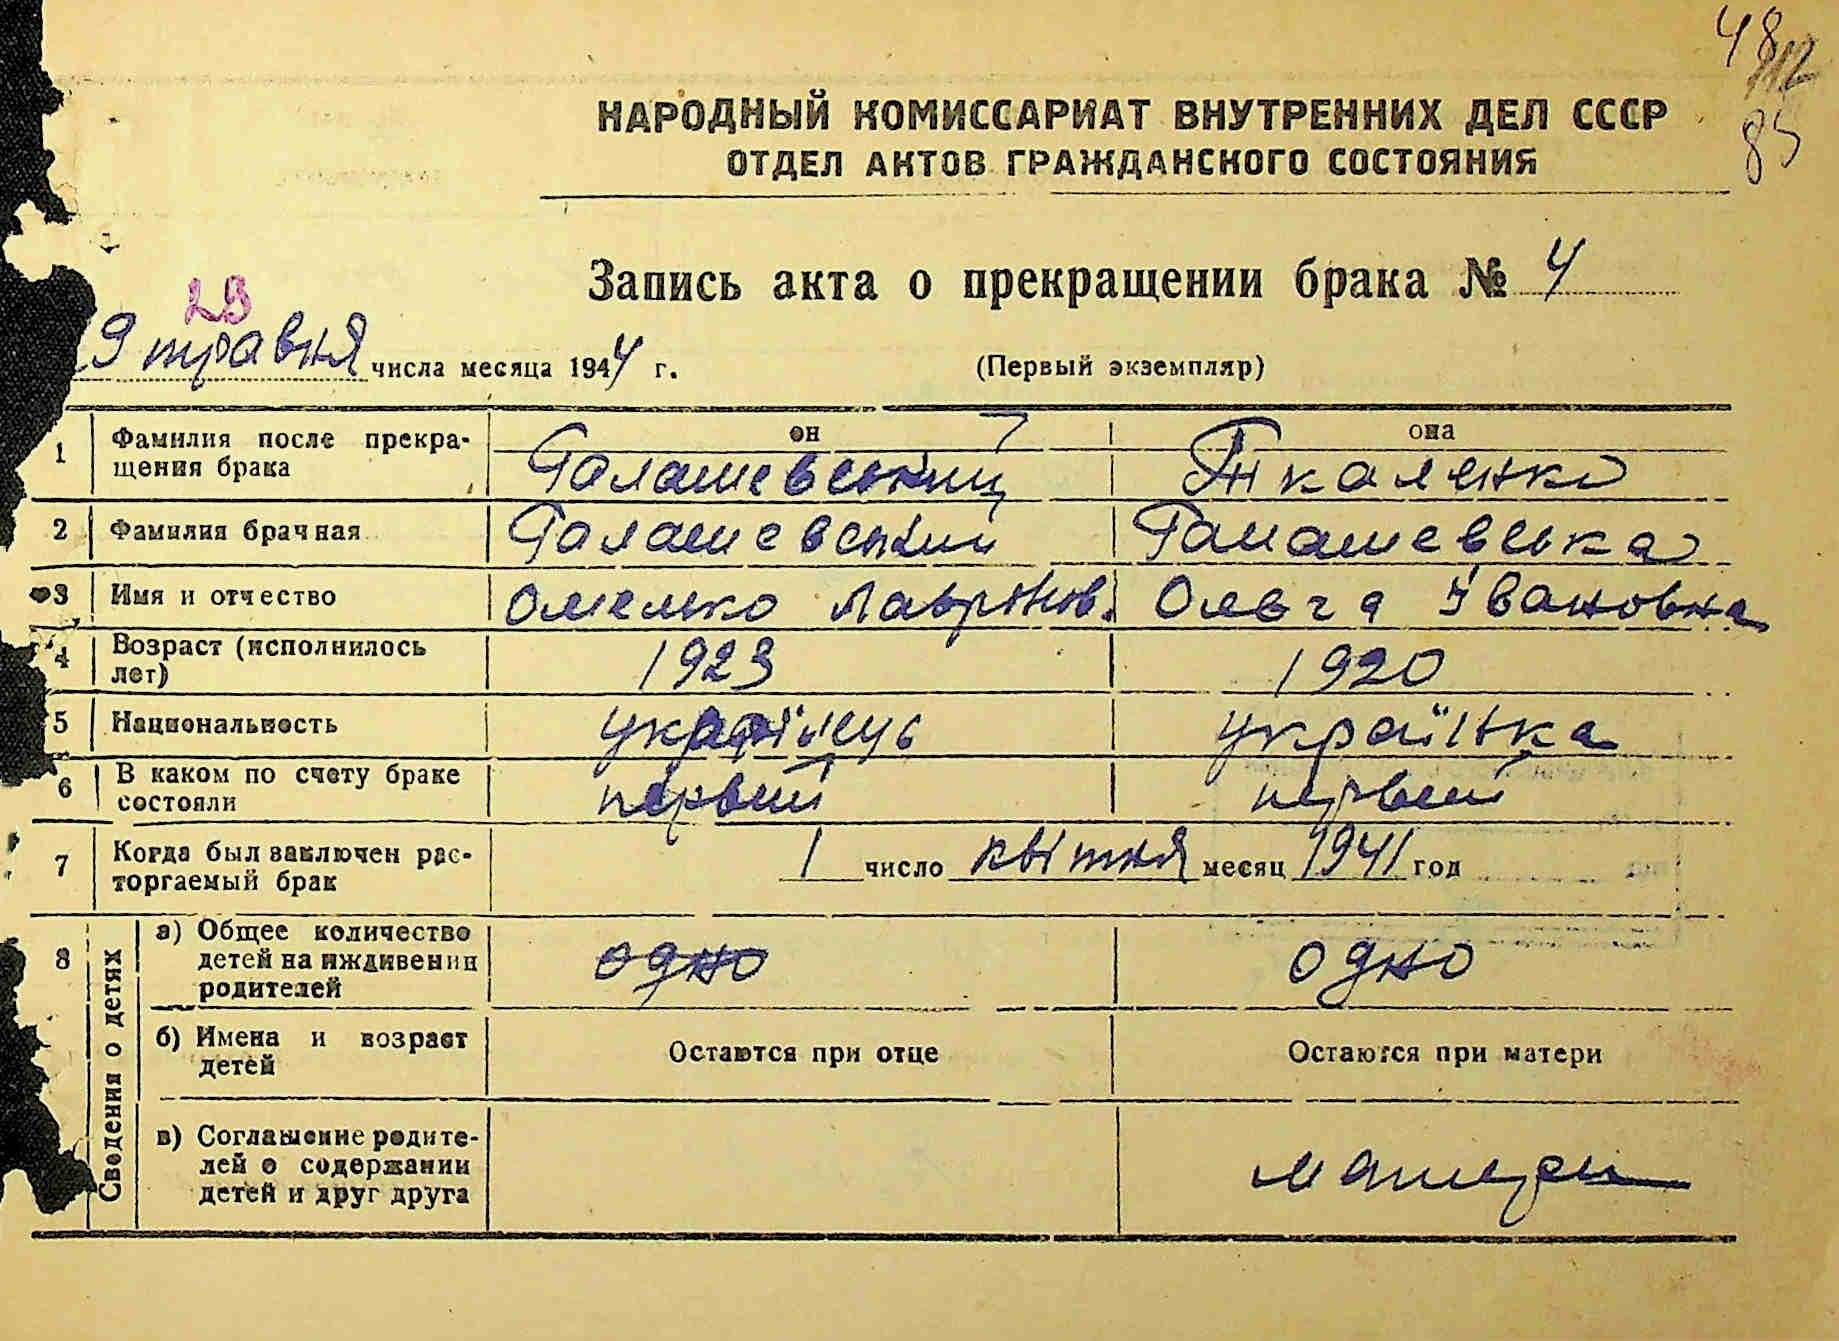 48
112
85
НАРОДНЫЙ КОМИССАРИАТ ВНУТРЕННИХ ДЕЛ СССР
ОТДЕЛ АКТОВ ГРАЖДАНСКОГО СОСТОЯНИЯ
Запись акта о прекращении брака № 4
29
29 травня числа месяца 1944 г. (Первый экземпляр)
он она
1 Фамилия после прекра- Галашевський Ткаленко
щения брака
2 Фамилия брачная Галашевський Галашевська
3 Имя и отчество Омелько Лавронов. Ольга Ивановна
4 Возраст (исполнилось 1923 1920
лет)
5 Национальность українць українка
6 В каком по счету браке первый первый
состояли
7 Когда был заключен рас- 1 число квітня месяц 1941 год
торгаемый брак
8 Сведения о детях
а) Общее количество одно одно
детей на иждивении
родителей
б) Имена и возраст Остаются при отце Остаются при матери
детей
в) Соглашение родите-
лей о содержании матери
детей и друг друга